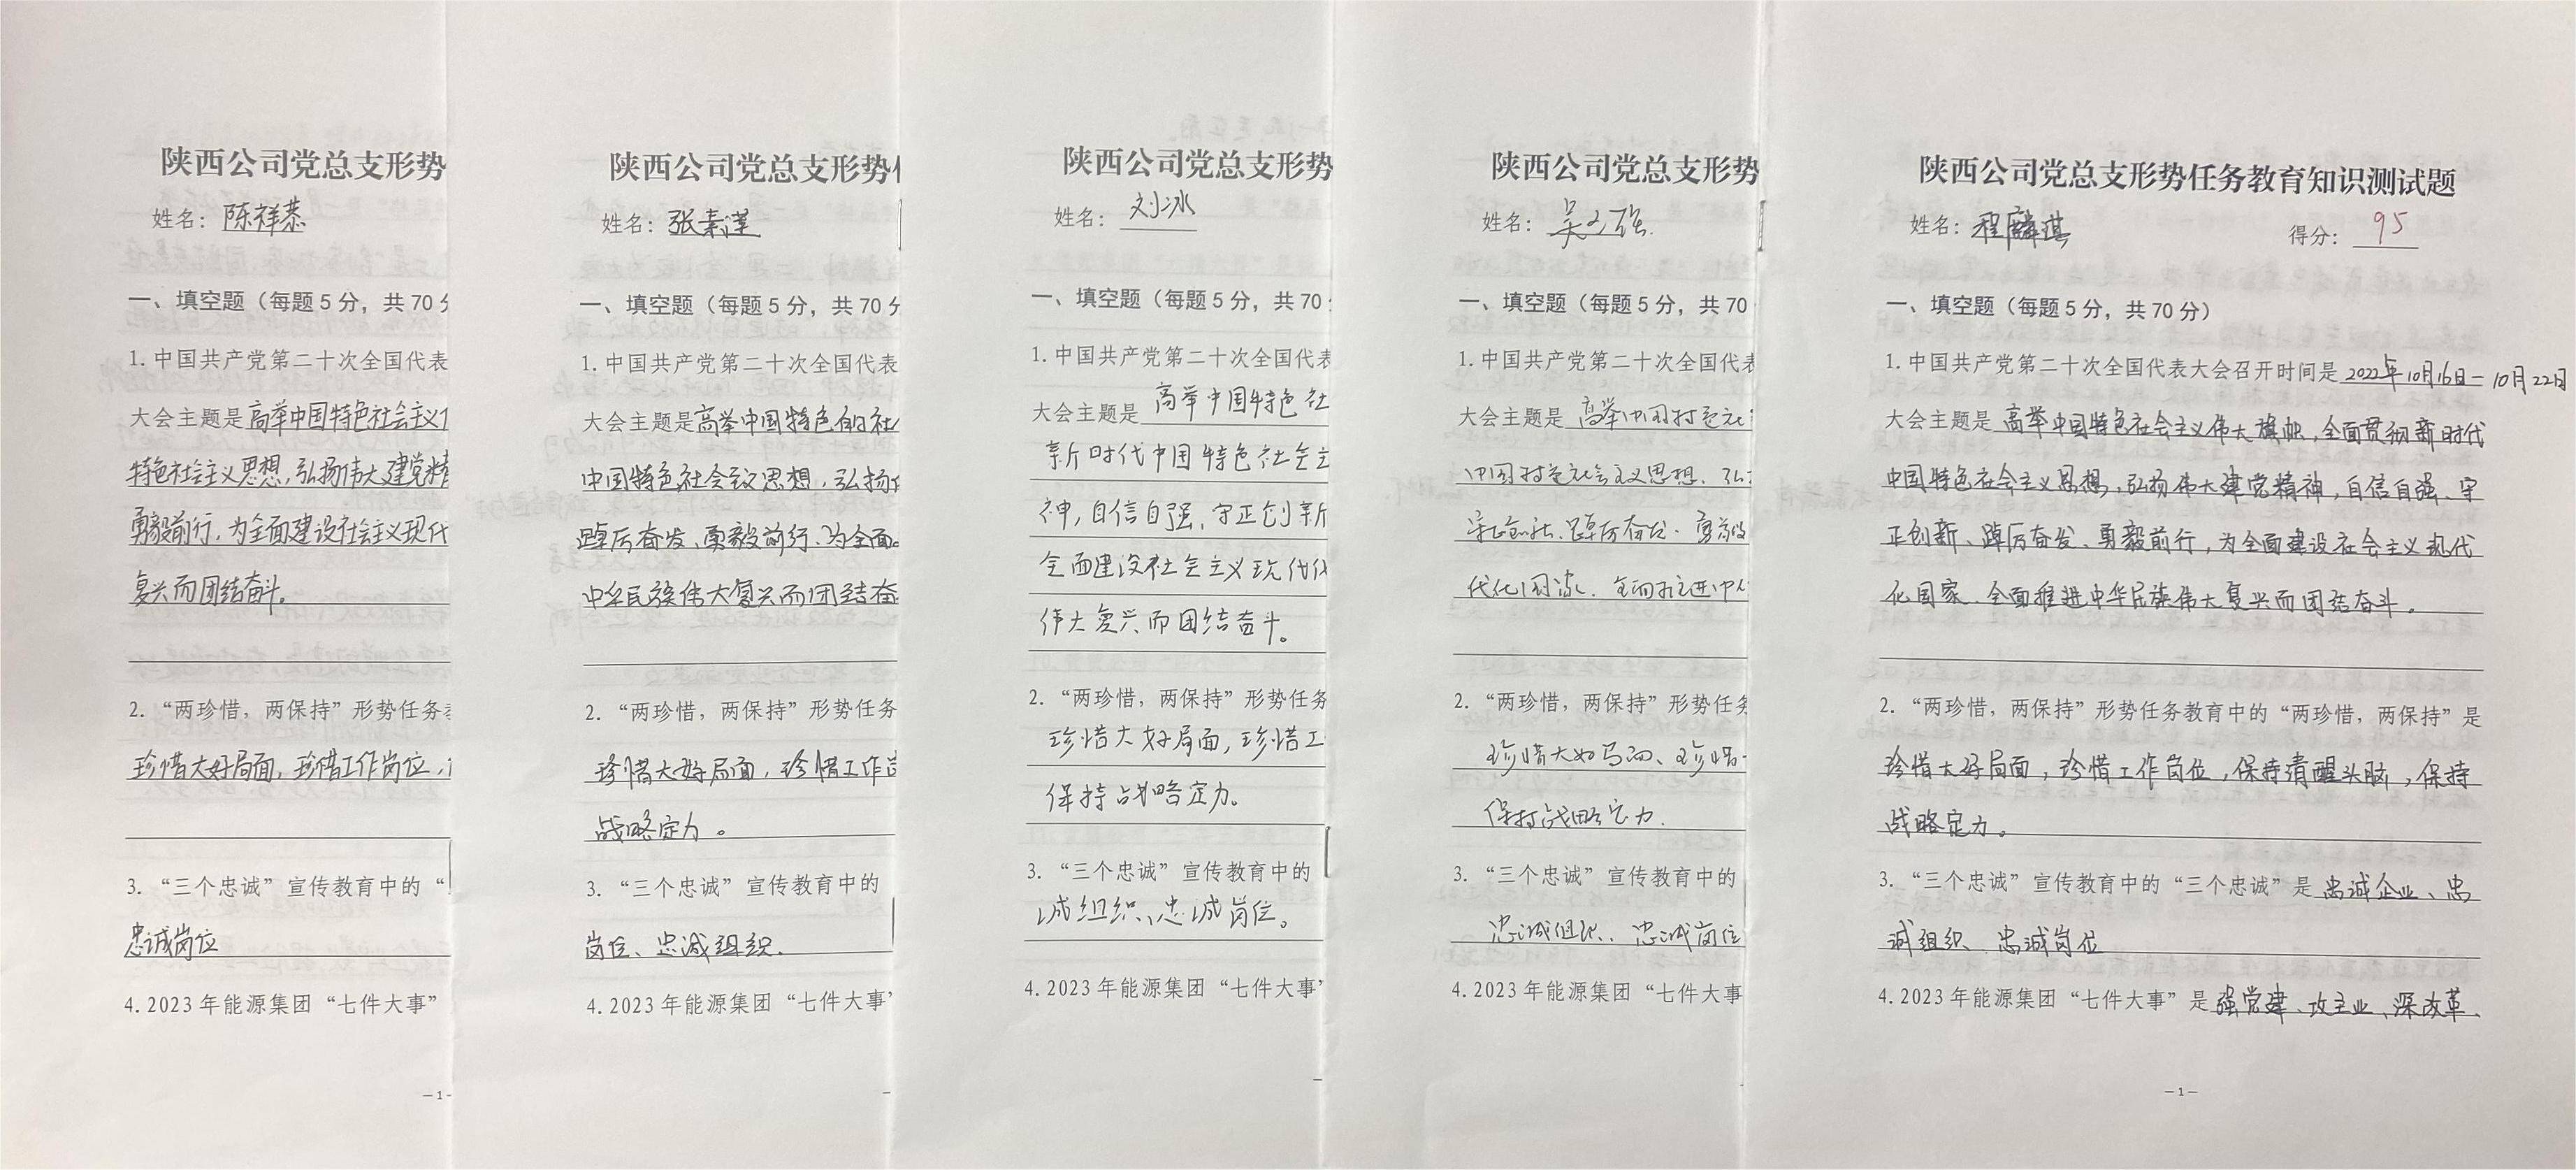 陕西公司党总支形势
姓名：陈祥恭
一、填空题（每题5分，共70分
1.中国共产党第二十次全国代表
大会主题是高举中国特色社会主义
特色社会主义思想，弘扬伟大建党精
勇毅前行，为全面建设社会主义现代
复兴而团结奋斗。
2.“两珍惜，两保持”形势任务
珍惜大好局面，珍惜工作岗位，
3.“三个忠诚”宣传教育中的“
忠诚岗位
4.2023年能源集团“七件大事”
—1-
陕西公司党总支形势
姓名：张素
一、填空题（每题5分，共70分
1.中国共产党第二十次全国代表
大会主题是高举中国特色的社
中国特色社会主义思想，弘扬
踔厉奋发、勇毅前行、为全面
中华民族伟大复兴而团结奋
2.“两珍惜，两保持”形势任务
珍惜大好局面，珍惜工作
战略定力。
3.“三个忠诚”宣传教育中的
岗位、忠诚组织.
4.2023年能源集团“七件大事’
陕西公司党总支形势
姓名：刘冰
一、填空题（每题5分，共70
1.中国共产党第二十次全国代表
大会主题是高举中国特色社
新时代中国特色社会主
神，自信自强、守正创新
全面建设社会主义现代化
伟大复兴而团结奋斗。
2.“两珍惜，两保持”形势任务
珍惜大好局面，珍惜工
保持战略定力。
3.“三个忠诚”宣传教育中的
诚组织、忠诚岗位。
4.2023年能源集团“七件大事’
陕西公司党总支形势
姓名：吴文强
一、填空题（每题5分，共70
1.中国共产党第二十次全国代表
大会主题是高举中国特色社
中国特色社会主义思想．弘
守正创新．踔厉奋发．勇毅
代化国家．全面推进中
2.“两珍惜，两保持”形势任务
珍惜大好局面、珍惜
保持战略定力.
3.“三个忠诚”宣传教育中的
忠诚组织．忠诚岗位
4.2023年能源集团“七件大事
陕西公司党总支形势任务教育知识测试题
姓名：程麟琪 得分：95
一、填空题（每题5分，共70分）
1.中国共产党第二十次全国代表大会召开时间是2022年10月16日-10月22日
大会主题是高举中国特色社会主义伟大旗帜，全面贯彻新时代
中国特色社会主义思想，弘扬伟大建党精神，自信自强、守
正创新、踔厉奋发、勇毅前行，为全面建设社会主义现代
化国家、全面推进中华民族伟大复兴而团结奋斗。
2.“两珍惜，两保持”形势任务教育中的“两珍惜，两保持”是
珍惜大好局面，珍惜工作岗位，保持清醒头脑，保持
战略定力。
3.“三个忠诚”宣传教育中的“三个忠诚”是忠诚企业、忠
诚组织、忠诚岗位
4.2023年能源集团“七件大事”是强党建、攻主业、深改革、
—1—